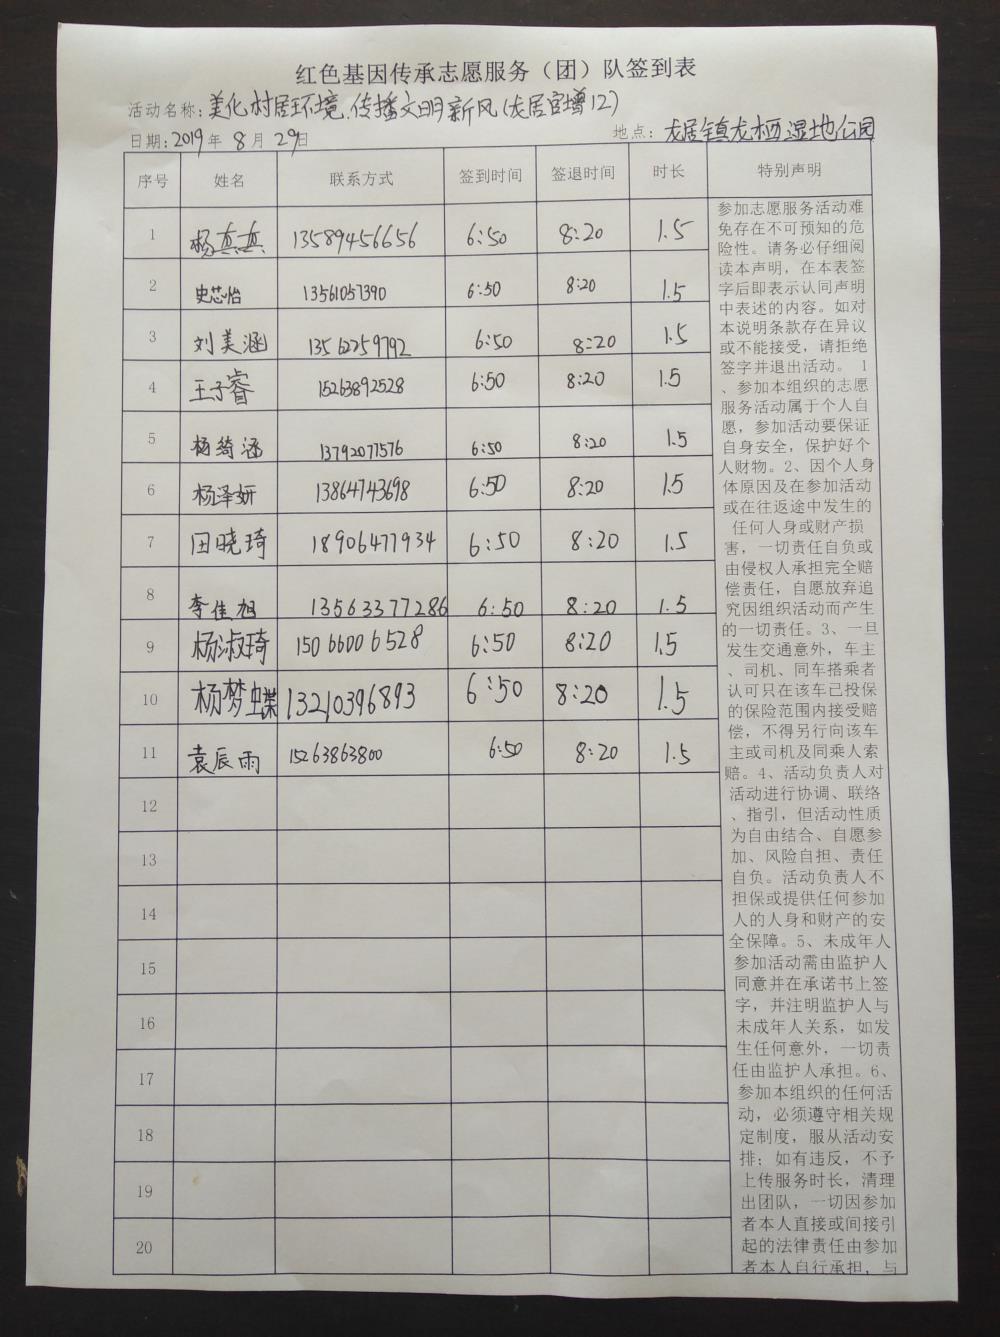 红色基因传承志愿服务（团）队签到表
活动名称：美化村居环境.传播文明新风(龙居官增12)
日期：2019年 8月 29日 地点：龙居镇龙栖湿地公园
序号 姓名 联系方式 签到时间 签退时间 时长 特别声明
1 杨真真 13589456656 6:50 8:20 1.5
2 史芯怡 13561057390 6:50 8:20 1.5
3 刘美涵 13562259792 6:50 8:20 1.5
4 王子睿 15263892528 6:50 8:20 1.5
5 杨绮涵 13792077576 6:50 8:20 1.5
6 杨泽妍 13864743698 6:50 8:20 1.5
7 田晓琦 18906477934 6:50 8:20 1.5
8 李佳旭 13563377286 6:50 8:20 1.5
9 杨淑琦 15066006528 6:50 8:20 1.5
10 杨梦蝶 13210396893 6:50 8:20 1.5
11 袁辰雨 15263863800 6:50 8:20 1.5
12
13
14
15
16
17
18
19
20
参加志愿服务活动难
免存在不可预知的危
险性。请务必仔细阅
读本声明，在本表签
字后即表示认同声明
中表述的内容。如对
本说明条款存在异议
或不能接受，请拒绝
签字并退出活动。 1
、参加本组织的志愿
服务活动属于个人自
愿，参加活动要保证
自身安全，保护好个
人财物。2、因个人身
体原因及在参加活动
或在往返途中发生的
任何人身或财产损
害，一切责任自负或
由侵权人承担完全赔
偿责任，自愿放弃追
究因组织活动而产生
的一切责任。3、一旦
发生交通意外，车主
、司机、同车搭乘者
认可只在该车已投保
的保险范围内接受赔
偿，不得另行向该车
主或司机及同乘人索
赔。4、活动负责人对
活动进行协调、联络
、指引，但活动性质
为自由结合、自愿参
加、风险自担、责任
自负。活动负责人不
担保或提供任何参加
人的人身和财产的安
全保障。5、未成年人
参加活动需由监护人
同意并在承诺书上签
字，并注明监护人与
未成年人关系，如发
生任何意外，一切责
任由监护人承担。6、
参加本组织的任何活
动，必须遵守相关规
定制度，服从活动安
排；如有违反，不予
上传服务时长，清理
出团队，一切因参加
者本人直接或间接引
起的法律责任由参加
者本人自行承担，与